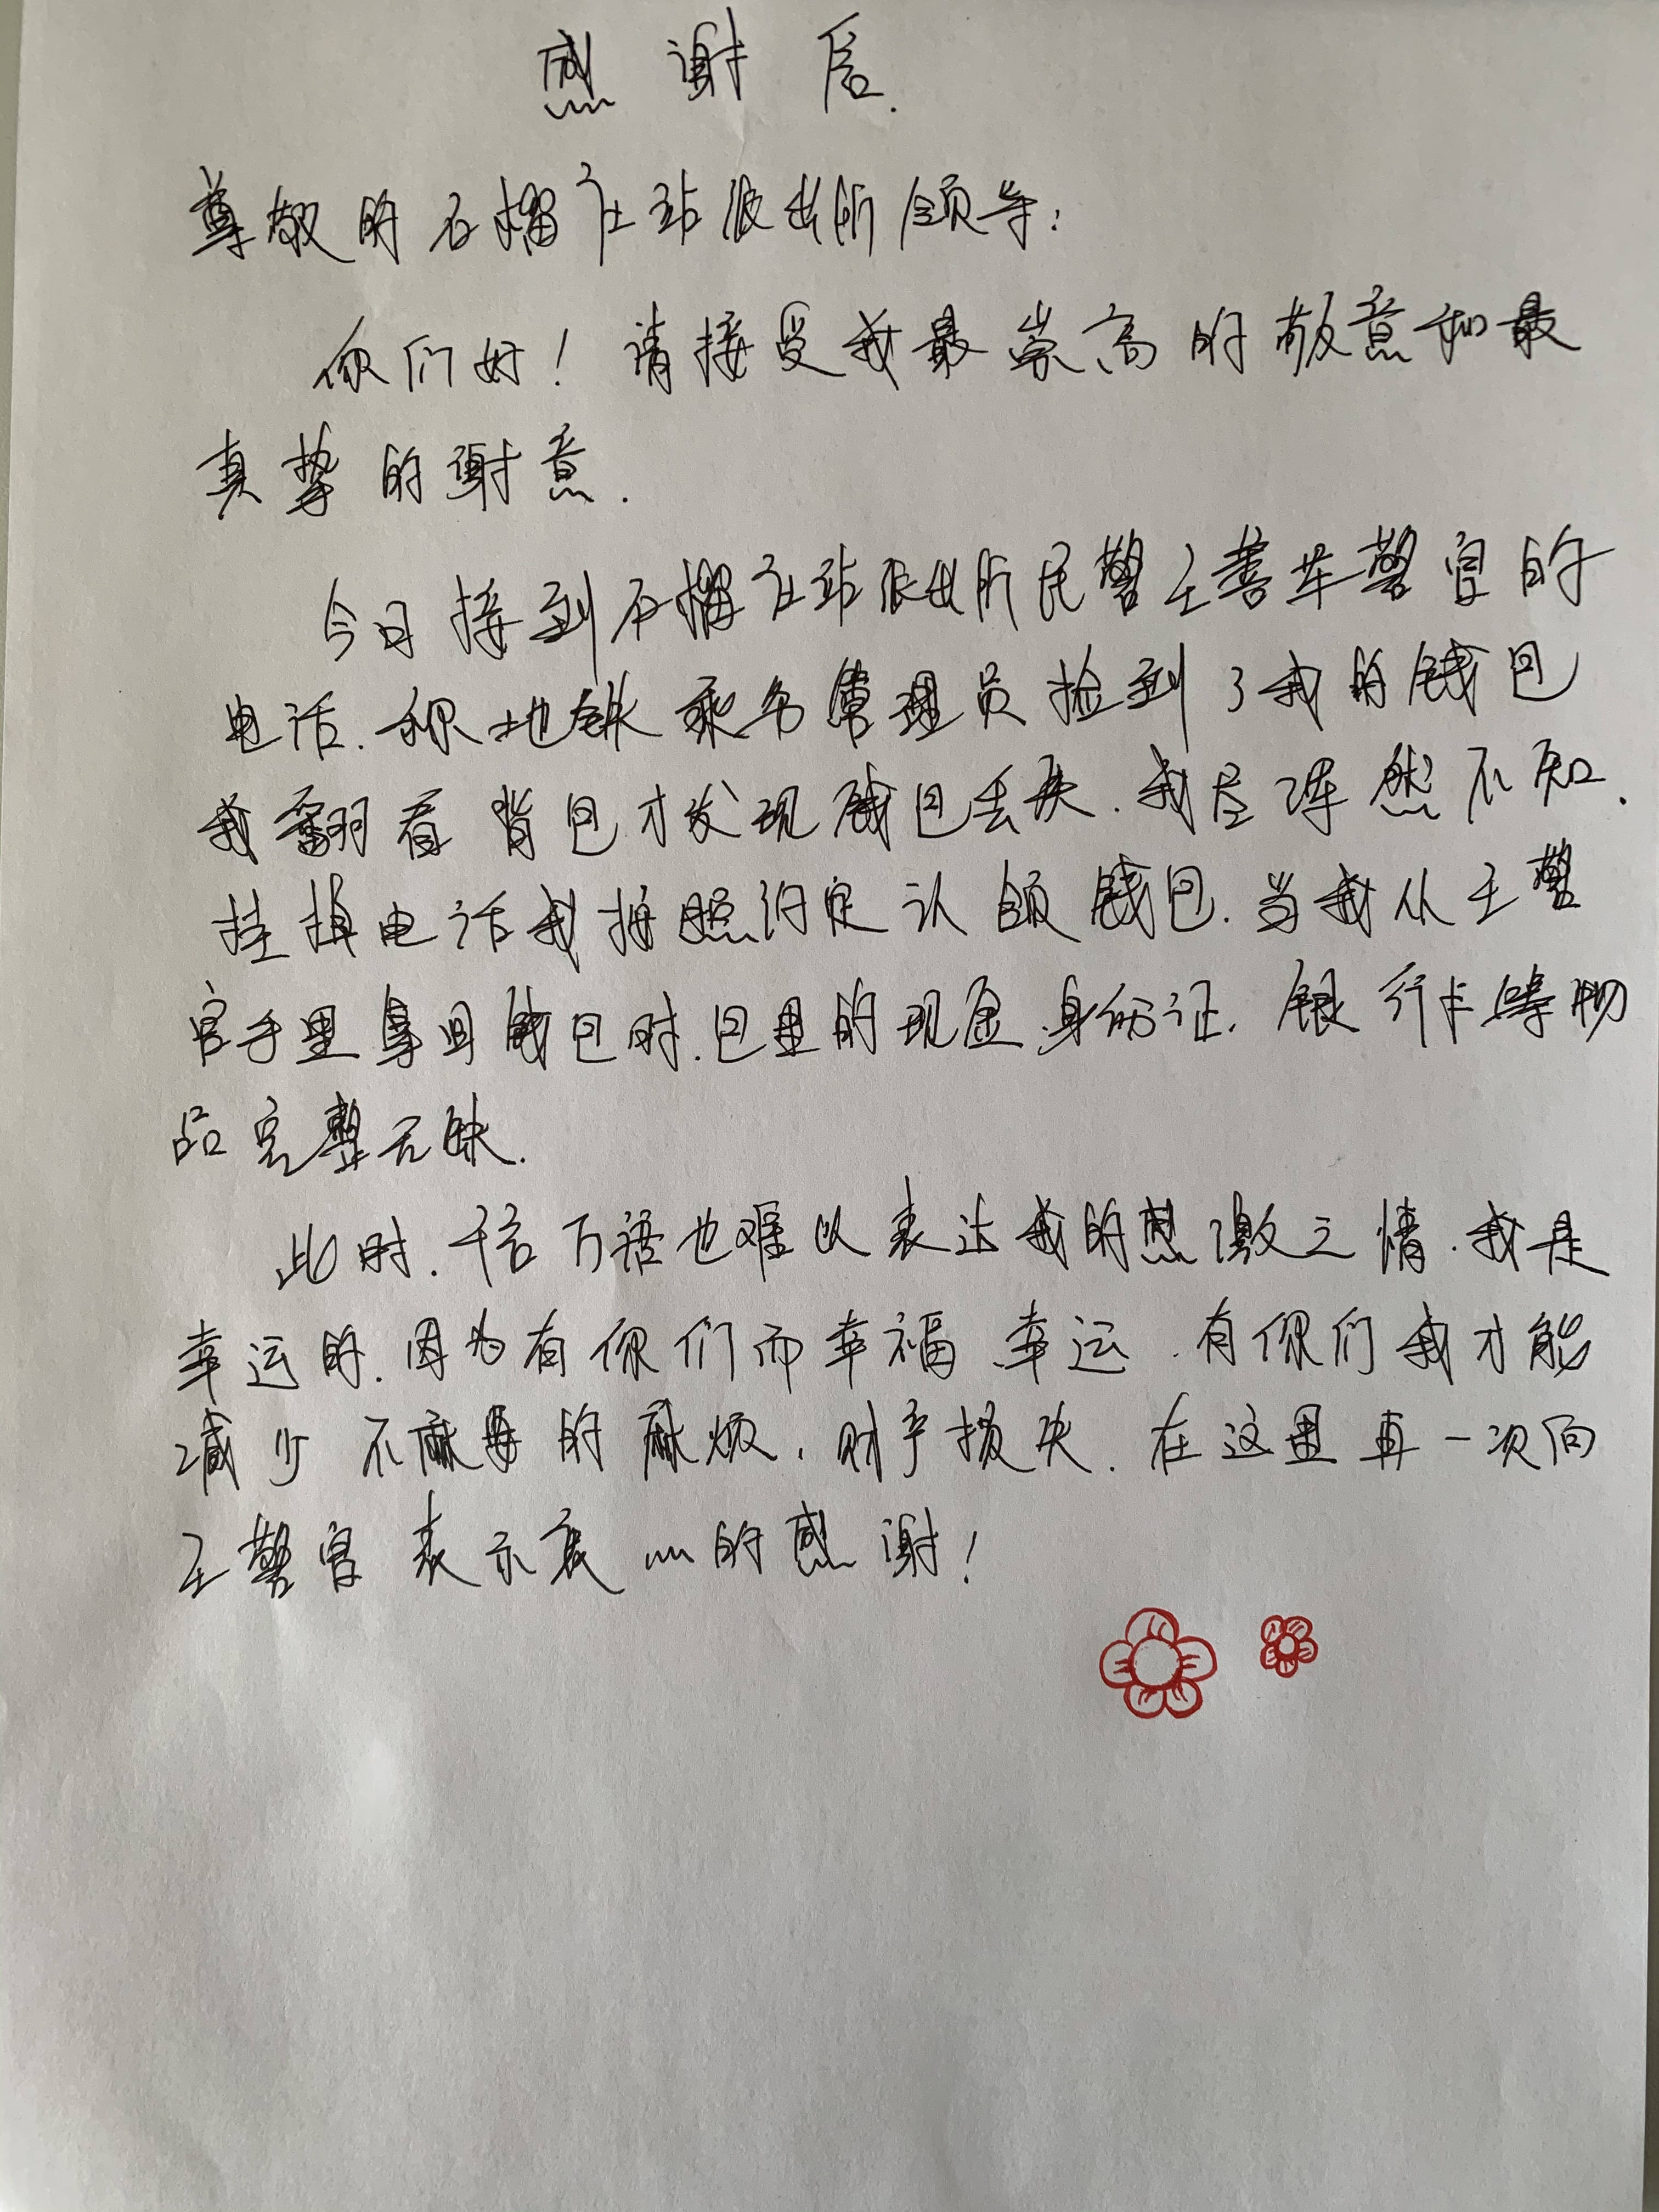 感谢信.
尊敬的石榴庄站派出所领导:
你们好！请接受我最崇高的敬意和最
真挚的谢意.
今日接到石榴庄站派出所民警王善车警官的
电话.称地铁乘务管理员捡到了我的钱包
我翻看背包才发现钱包丢失.我尽浑然不知.
挂掉电话我按照约定认领钱包.当我从王警
官手里拿回钱包时.包里的现金、身份证、银行卡等物
品完整无缺.
此时.千言万语也难以表达我的感激之情.我是
幸运的.因为有你们而幸福、幸运.有你们我才能
减少不麻要的麻烦、财产损失.在这里再一次向
王警官表示衷心的感谢！